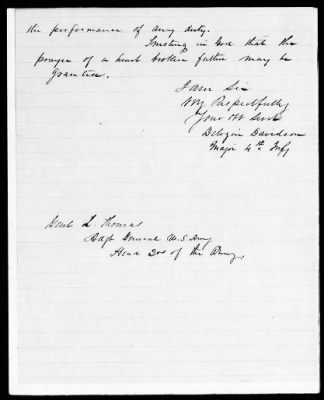 the performance of any duty.
Trusting in God that the
prayer of a heart broken father may be
Granted.
I am Sir
Very Respectfully
Your Obt Servt
Delozier Davidson
Major 4th Infy
Genl L. Thomas
Adjt General U.S. Army
Head Qrs of the Army,